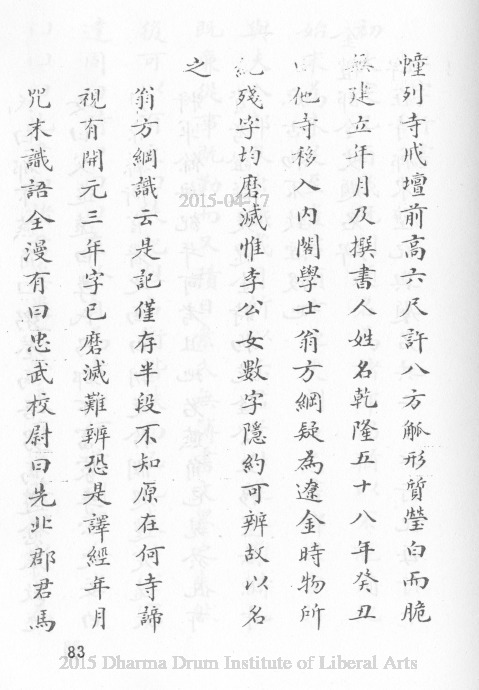 幢列寺戒壇前高六尺許八方觚形質瑩白而脆
無建立年月及撰書人姓名乾隆五十八年癸丑
他寺移入内閣學士翁方綱疑為遼金時物所
紀殘字均磨滅惟李公女數字隱約可辨故以名
之
翁方綱識云是記僅存半段不知原在何寺諦
視有開元三年字已磨滅難辨恐是譯經年月
咒末識語全漫有曰忠武校尉曰先北郡君馬
2015-04-17
83
2015 Dharma Drum Institute of Liberal Arts